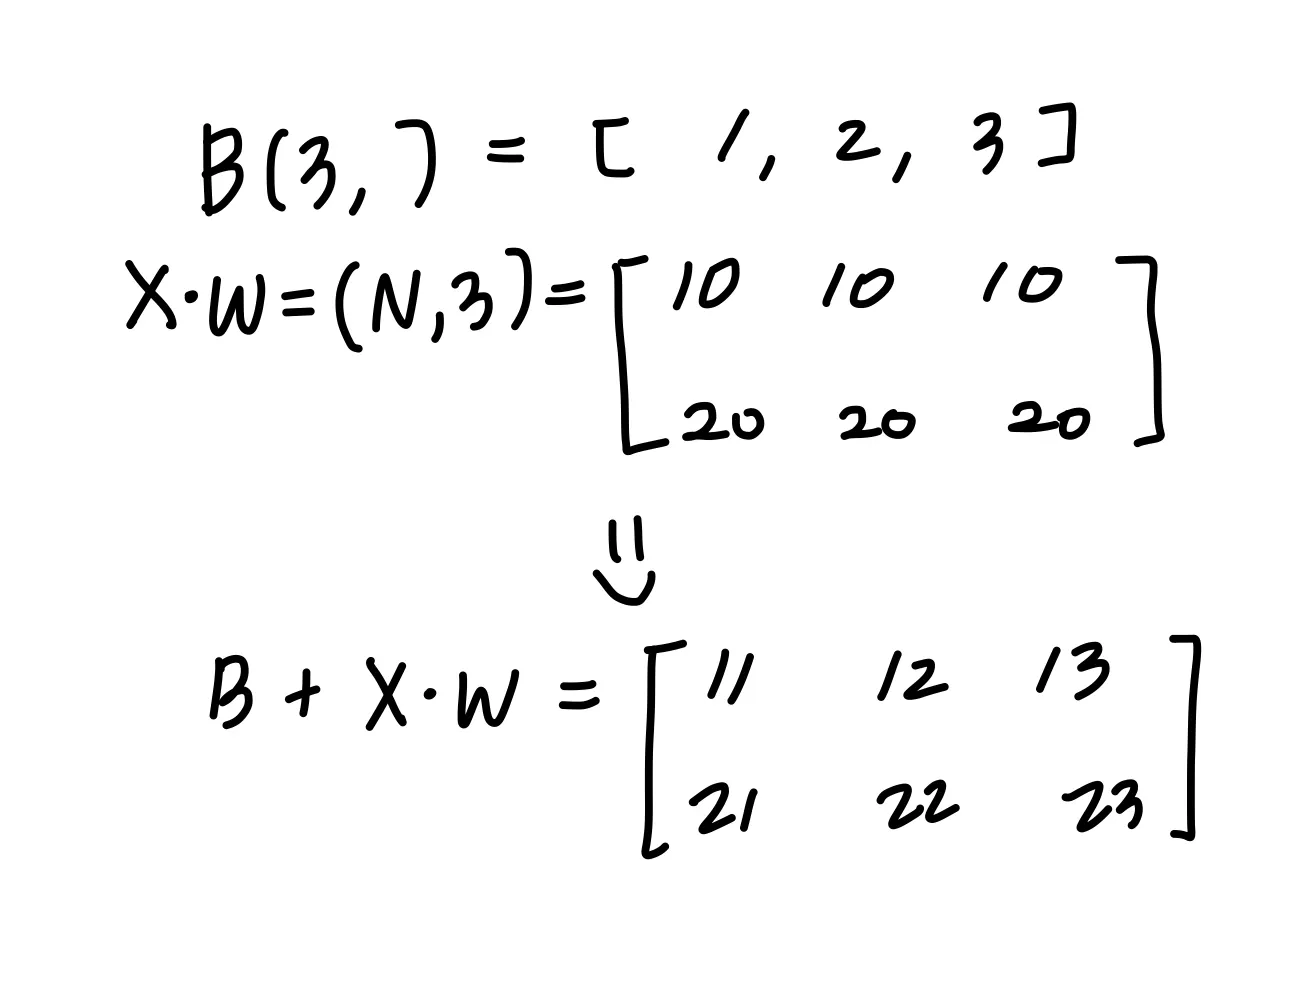 B(3,) = [ 1, 2, 3 ]
X·W=(N,3)= [ 10 10 10
20 20 20 ]
⇓
B + X·W = [ 11 12 13
21 22 23 ]